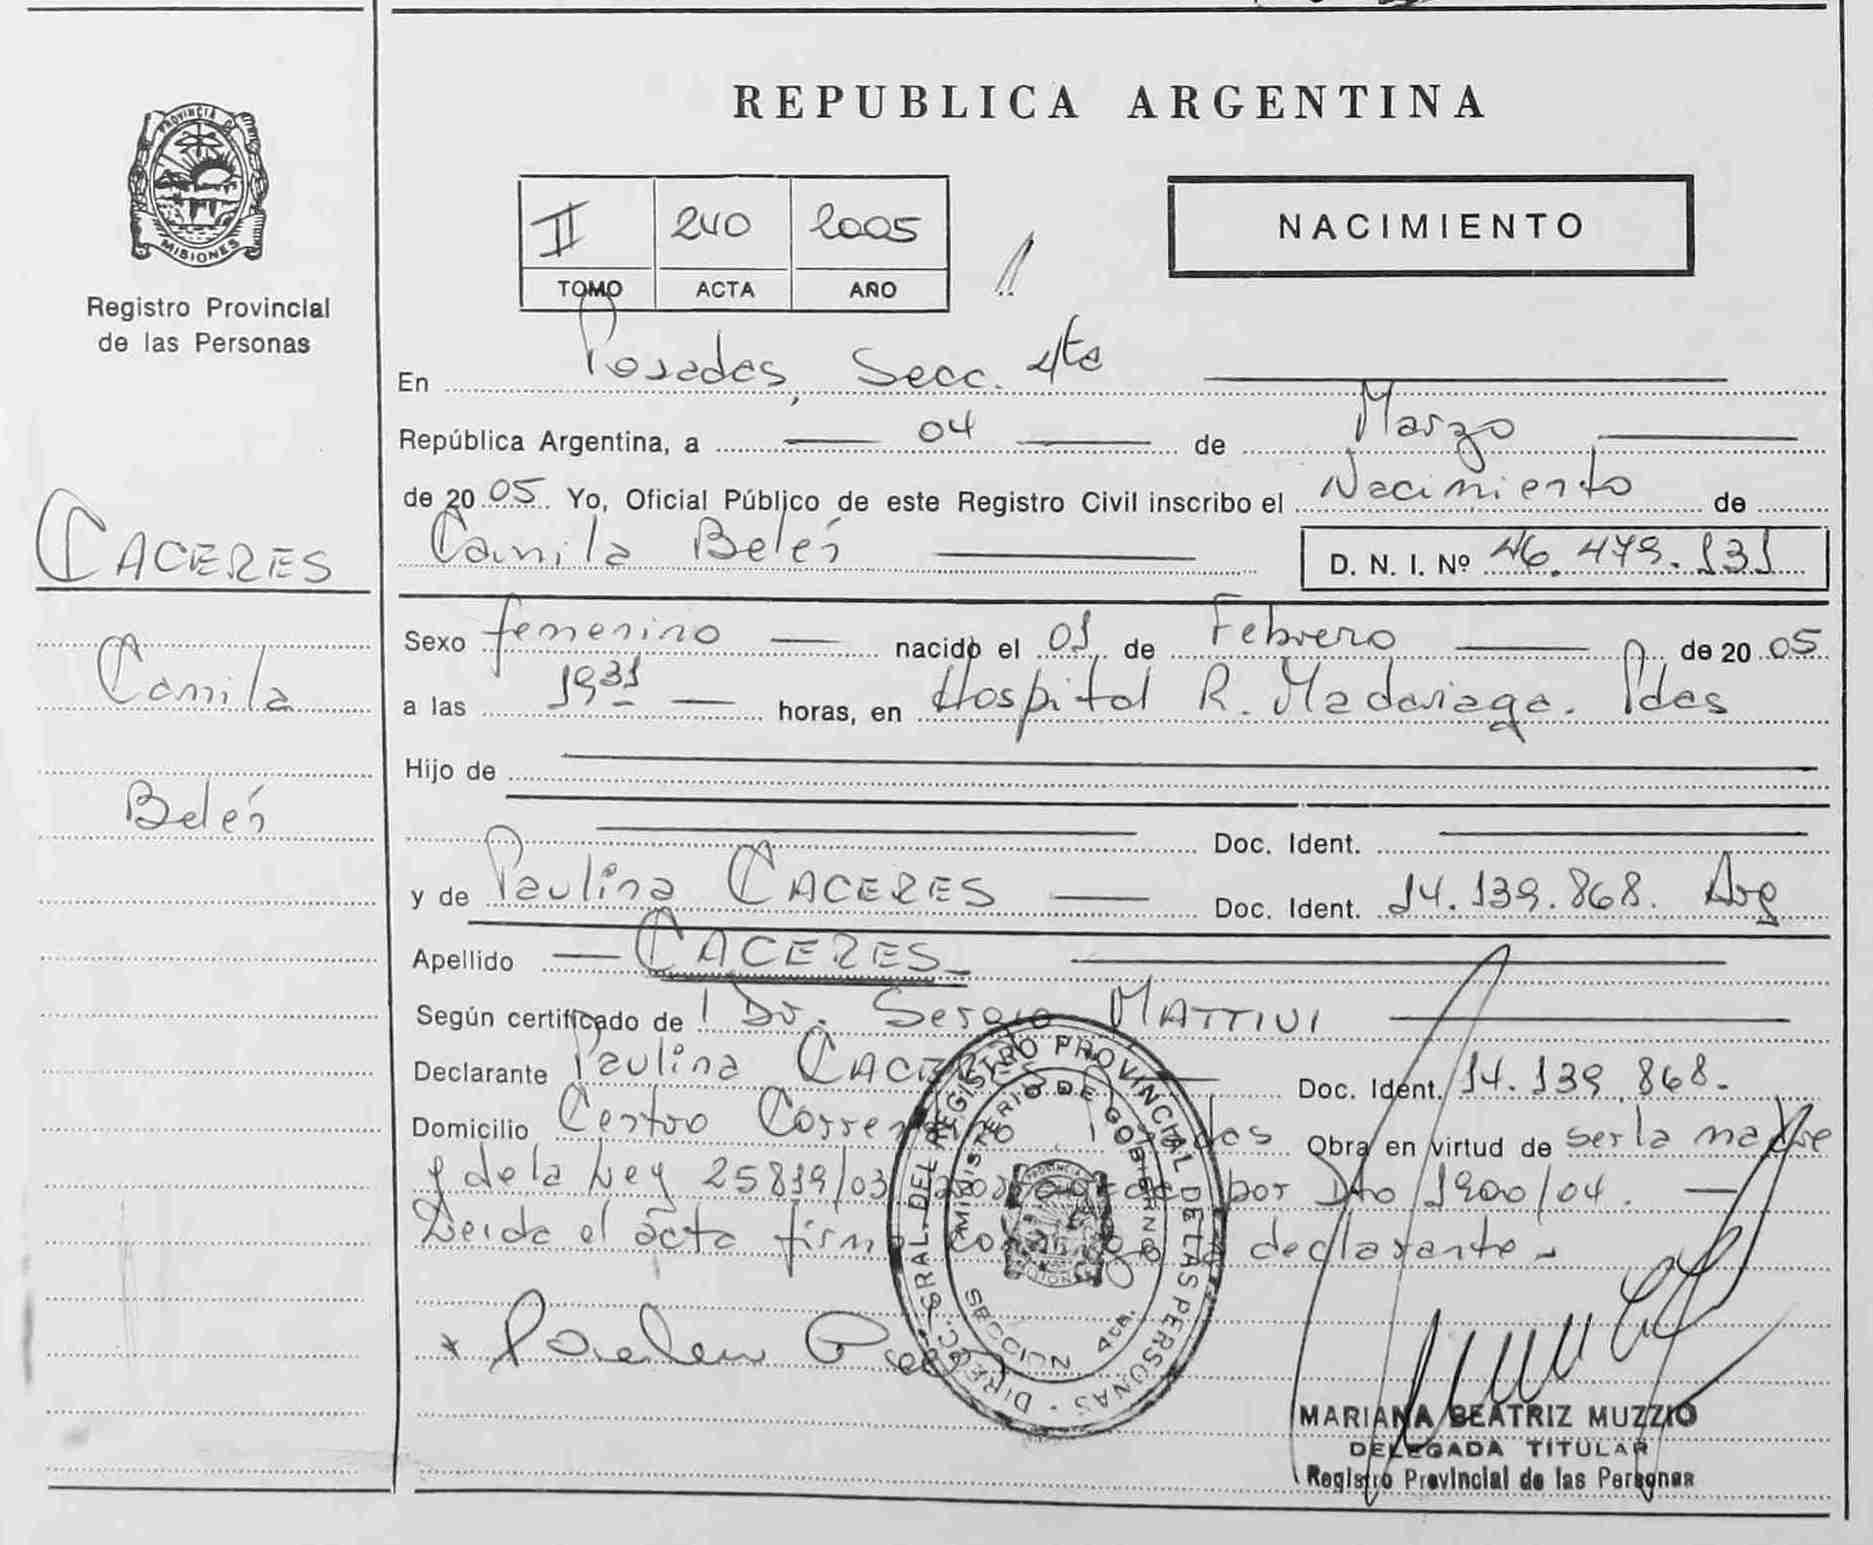 PROVINCIA DE
MISIONES
Registro Provincial
de las Personas
CACERES
Camila
Belén
REPUBLICA ARGENTINA
II 240 2005
TOMO ACTA AÑO
NACIMIENTO
En Posadas, Secc. 4ta
República Argentina, a 04 de Marzo
de 2005 Yo, Oficial Público de este Registro Civil inscribo el Nacimiento de
Camila Belén D. N. I. Nº 46.479.131
Sexo femenino nacido el 01 de Febrero de 2005
a las 1931 horas, en Hospital R. Madariaga. Pdas
Hijo de
Doc. Ident.
y de Paulina CACERES Doc. Ident. 14.139.868. Arg
Apellido CACERES
Según certificado de Dr. Sergio MATTIVI
Declarante Paulina CACERES Doc. Ident. 14.139.868.
Domicilio Centro Correntino Posadas Obra en virtud de ser la madre
y de la Ley 25819/03 por Dto 1900/04.
Leida el acta firma declarante.
DIREC. GRAL. DEL REGISTRO PROVINCIAL DE LAS PERSONAS
MINISTERIO DE GOBIERNO
SECCION 4ta.
MARIANA BEATRIZ MUZZIO
DELEGADA TITULAR
Registro Provincial de las Personas